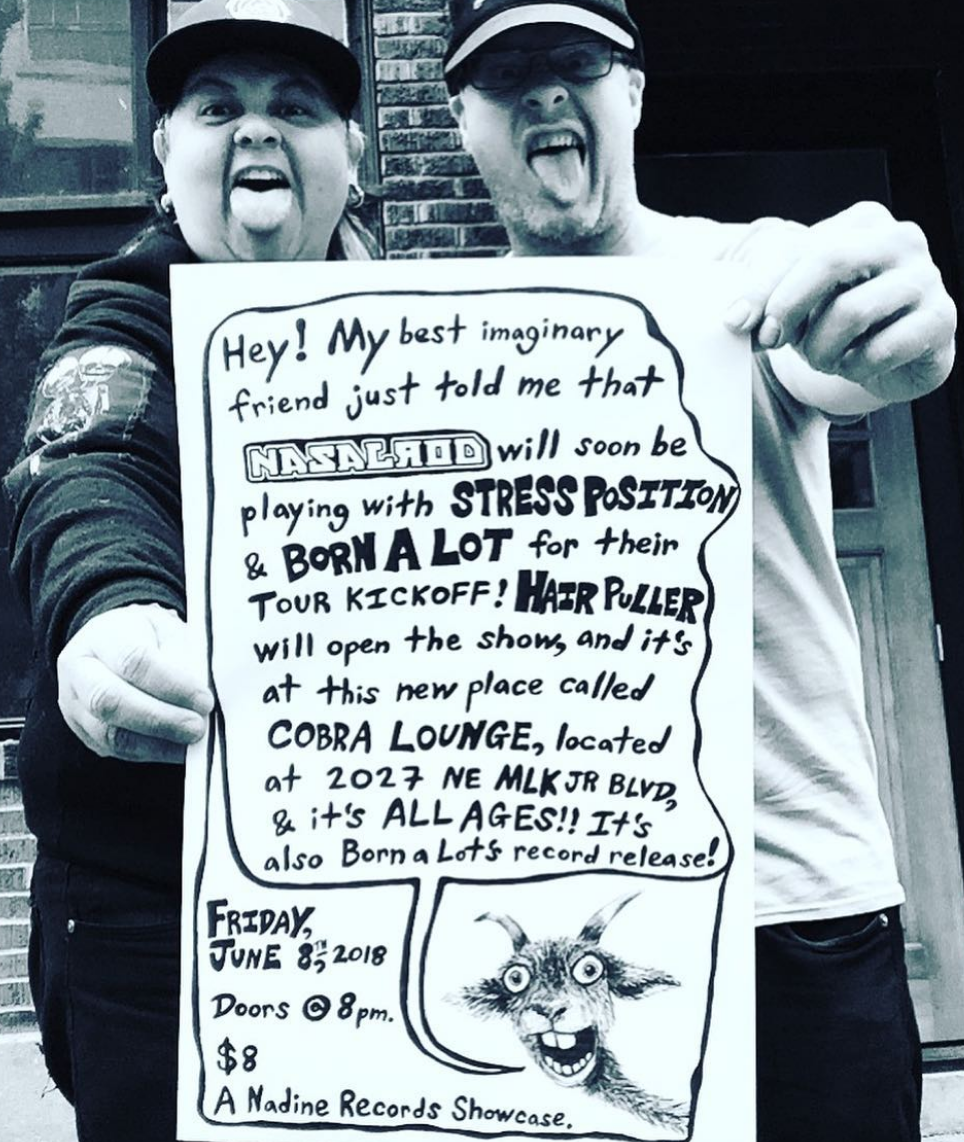 Hey! My best imaginary
friend just told me that
NASALROD will soon be
playing with STRESS POSITION
& BORN A LOT for their
TOUR KICKOFF! HAIR PULLER
will open the show, and it's
at this new place called
COBRA LOUNGE, located
at 2027 NE MLK JR BLVD,
& it's ALL AGES!! It's
also Born a Lot's record release!
FRIDAY,
JUNE 8TH, 2018
Doors @ 8pm.
$8
A Nadine Records Showcase.